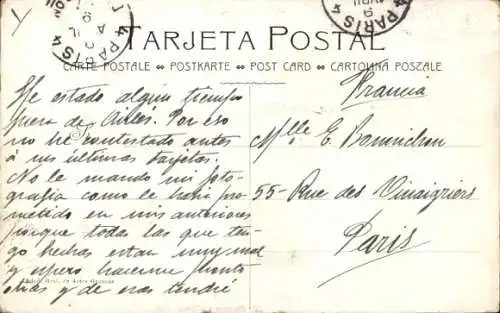 TARJETA POSTAL
CARTE POSTALE ❧ POSTKARTE ❧ POST CARD ❧ CARTOLINA POSZALE
PARIS
PARIS 4
AVRIL
He estado algún tiempo
fuera de Por eso
no he contestado antes
á sus últimas tarjetas.
No le mando mi foto-
grafia como le había pro-
metido en mis anteriores
porque todas las que ten-
go hechas estan muy mal
y espero hacerme pronto
otras y de esas tendré
Francia
Mlle E. Bonnichon
55- Rue des Vinaigriers
Paris